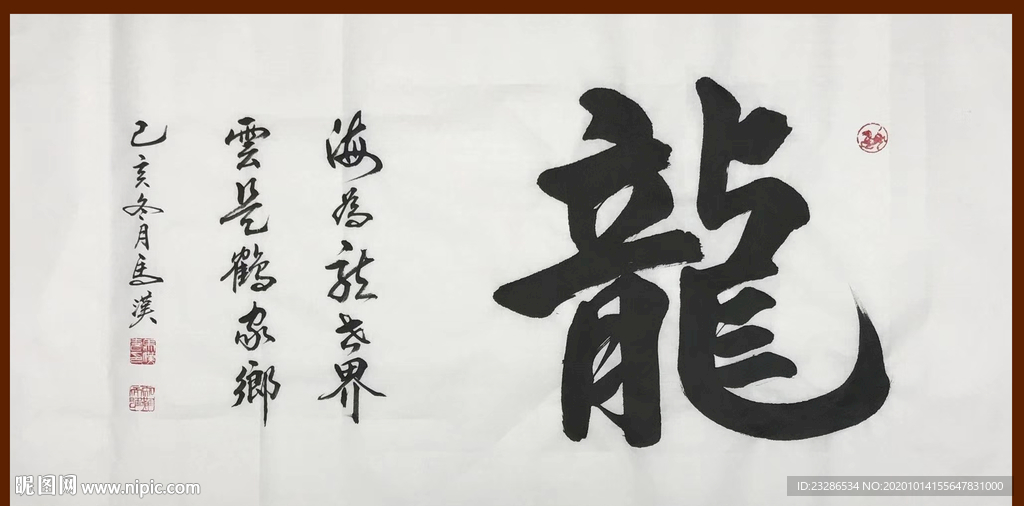 龍
海為龍世界
雲是鶴家鄉
己亥冬月馬漢
昵图网 www.nipic.com
ID:23286534 NO:20201014155647831000